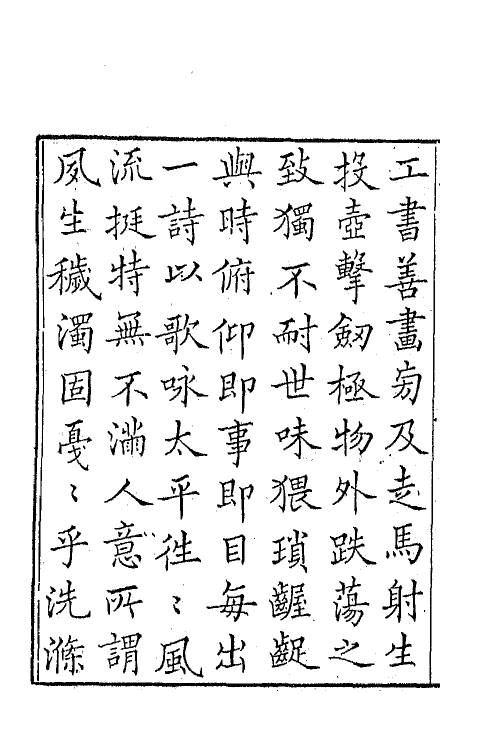 工書善畫旁及走馬射生
投壺擊劒極物外跌蕩之
致獨不耐世味猥瑣齷齪
與時俯仰即事即目每出
一詩以歌咏太平徃〻風
流挺特無不滿人意所謂
夙生穢濁固戞〻乎洗滌